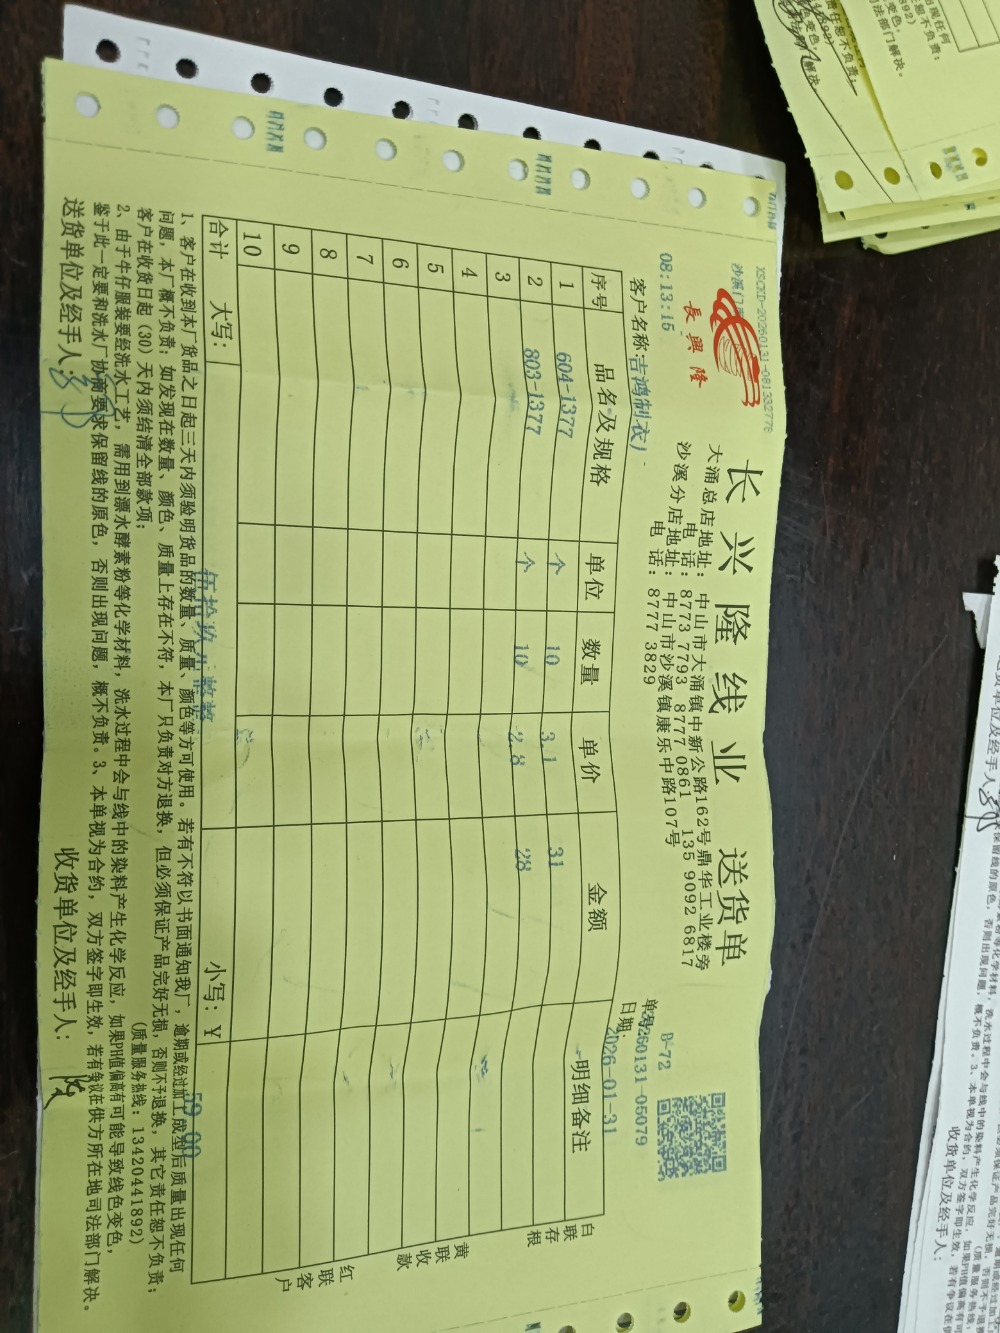 XSCKD-20260131-081332778
08:13:15
長興隆
长兴隆线业 送货单
大涌总店地址：中山市大涌镇中新公路162号鼎华工业楼旁
电 话：8773 7793 8777 0861 135 9092 6817
沙溪分店地址：中山市沙溪镇康乐中路107号
电 话：8777 3829
D-72
单号 260131-05079
日期：2026-01-31
客户名称：吉鸿制衣厂
序号 品名及规格 单位 数量 单价 金额 明细备注
1 604-1377 个 10 3.1 31
2 803-1377 个 10 2.8 28
3
4
5
6
7
8
9
10
合计 大写：伍拾玖元整 小写：￥ 59.00
白联存根
黄联收款
红联客户
1、客户在收到本厂货品之日起三天内须验明货品的数量、质量、颜色等方可使用。若有不符以书面通知我厂，逾期或经过加工成型后质量出现任何
问题，本厂概不负责；如发现在数量、颜色、质量上存在不符，本厂只负责对方退换，但必须保证产品完好无损，否则不予退换，其它责任恕不负责；
客户在收货日起（30）天内须结清全部款项； （质量服务热线：13420441892）
2、由于牛仔服装要经洗水工艺，需用到漂水酵素粉等化学材料，洗水过程中会与线中的染料产生化学反应，如果PH值偏高有可能导致线色变色，
鉴于此一定要和洗水厂协商要求保留线的原色，否则出现问题，概不负责。3、本单视为合约，双方签字即生效，若有争议在供方所在地司法部门解决。
送货单位及经手人： 收货单位及经手人：
收货单位及经手人：